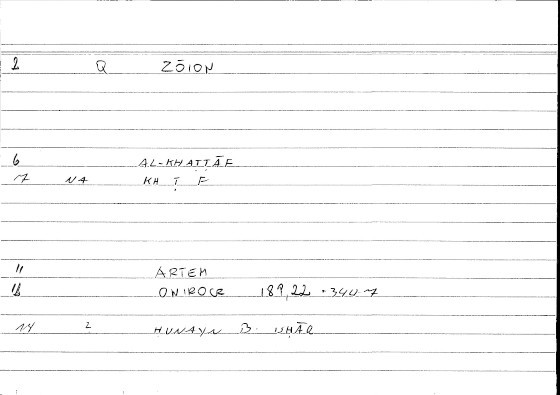 2 Q ZŌION
6 AL-KHAṬṬĀF
7 NA KH Ṭ F
11 ARTEM
ONIROCR 189,22 = 340-7
14 2 ḤUNAYN B. ISḤĀQ